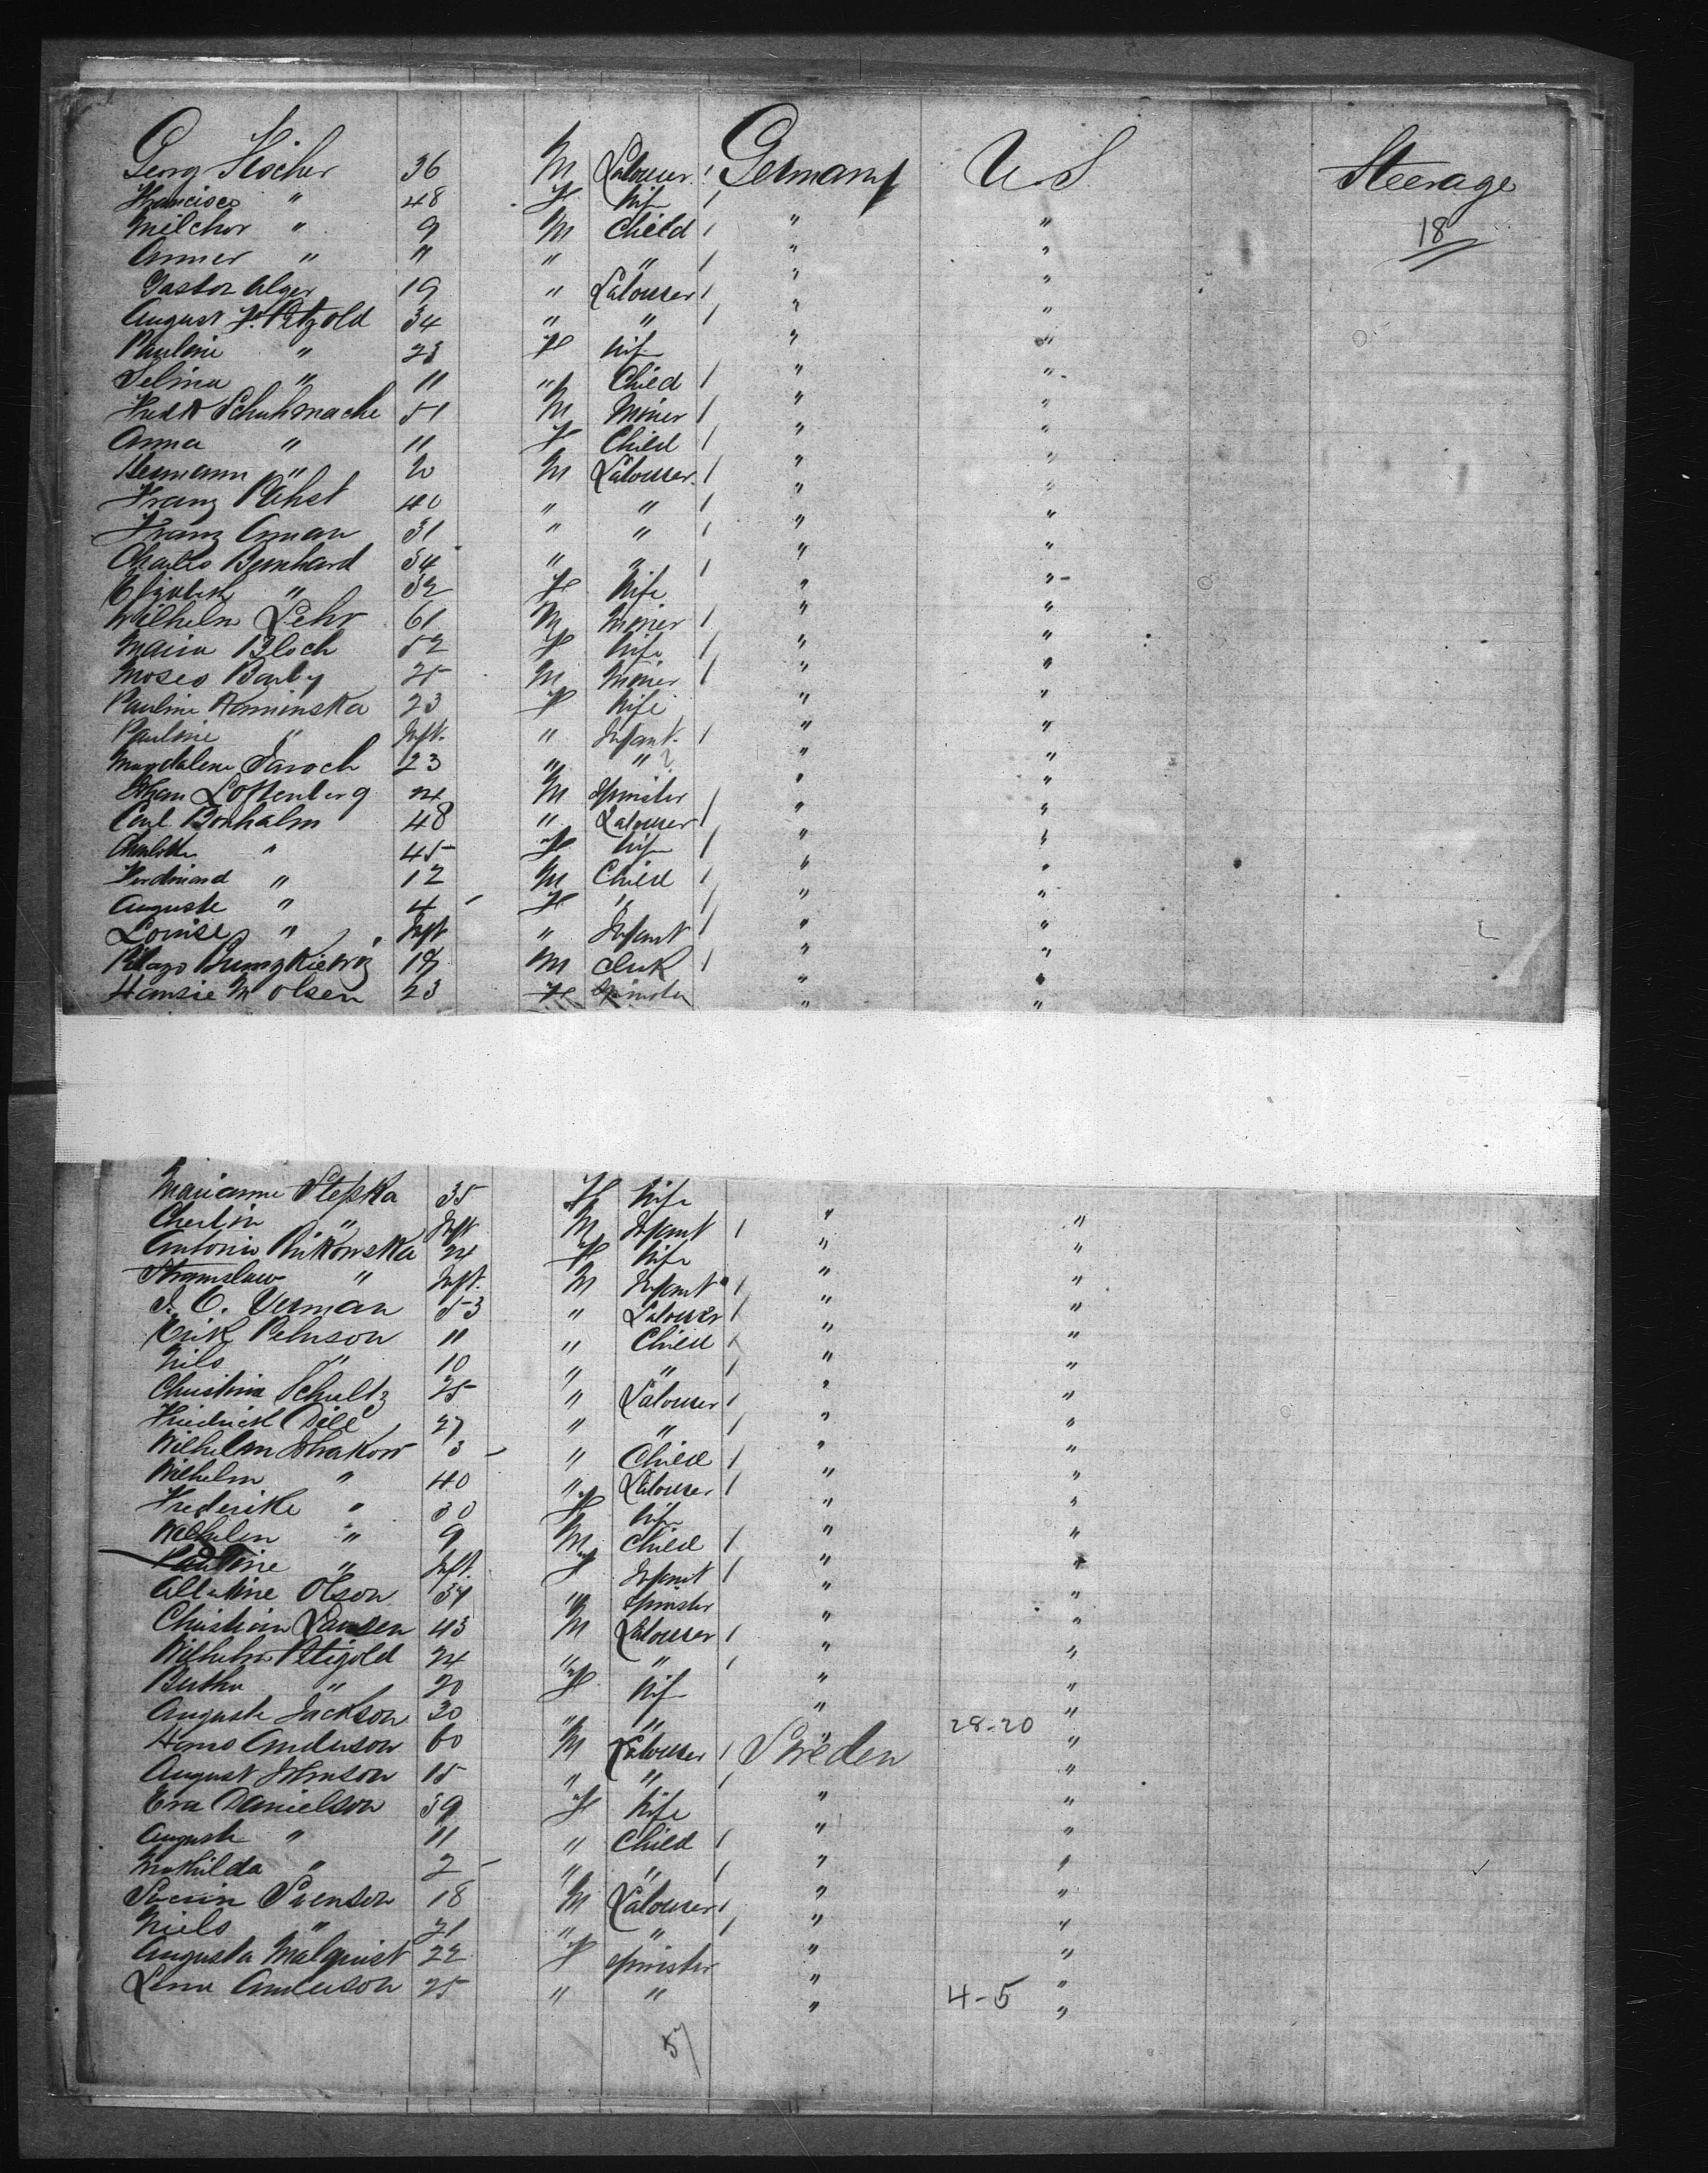 Georg Fischer 36 M Labourer / Germany U S Steerage
Francisco " 48 F Wife /
Milchor " 9 M Child / " " 18
Anner " " " " / " "
Gaston Alger 19 " Labourer / " "
August F. Petzold 34 " " / " "
Pauline " 23 F Wife " "
Selina " 11 " Child / " "
Fredk Schuhmache 51 M Miner / " "
Anna " 11 F Child / " "
Hermann " 20 M Labourer / " "
Franz Pabst 40 " " / " "
Franz Aman 31 " " / " "
Charles Bernhard 54 " " / " "
Elizabeth " 52 F Wife " "
Wilhelm Lehr 61 M Miner / " "
Maria Bloch 52 F Wife " "
Moses Barby 25 M Miner / " "
Pauline Kaminska 23 F Wife " "
Pauline " Inft. " Infant / " "
Magdalene Jaroch 23 " " " "
Loftenberg 24 M Spinster " "
Carl Bonhalm 48 " Labourer / " "
Charlotte " 45 F Wife / " "
Ferdinand " 12 M Child / " "
Auguste " 4 F " / " "
Louise " Inft " Infant / " "
19 M Clerk / " "
Hansie M Olsen 23 F Spinster " "
Marianne Stepka 35 F Wife
" Inft M Infant / " "
Antonie Rutkowska 24 F Wife " "
Stranislaw " Inft. M Infant / " "
J. C. Verman 53 " Labourer / " "
Erik Pehrson 11 " Child / " "
Nils " 10 " " / " "
Christina Schultz 25 " Labourer / " "
Friedrich Dill 27 " " / " "
Wilhelm 3 " Child / " "
Wilhelm " 40 " Labourer / " "
Frederike " 30 F Wife " "
Wilhelm " 9 M Child / " "
Pauline " Inft. F Infant / " "
Olson 34 " Spinster " "
Christian Lansen 43 M Labourer / " "
Wilhelm Petigold 24 " " / " "
Bertha " 20 F Wife " "
Auguste Jackson 30 " " " 28-20 "
Hans Anderson 60 M Labourer / Sweden "
August Johnson 15 " " / "
Eva Danielson 39 F Wife " "
Auguste " 11 " Child / " "
Mathilda " 2 " " / " "
Svenson 18 M Labourer / " "
Niels " 21 " " / " "
Augusta Malquist 22 F Spinster " "
Lena Anderson 25 " " " 4-5 "
57